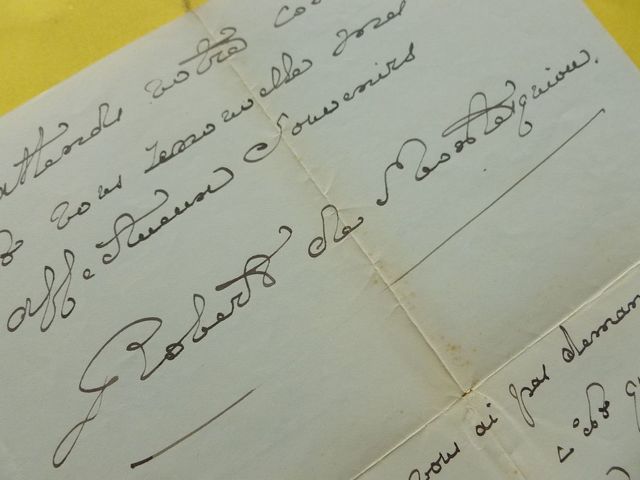 attends votre
vous renouvelle mes
affectueux souvenirs
Robert de Montesquiou.
vous ai pas deman